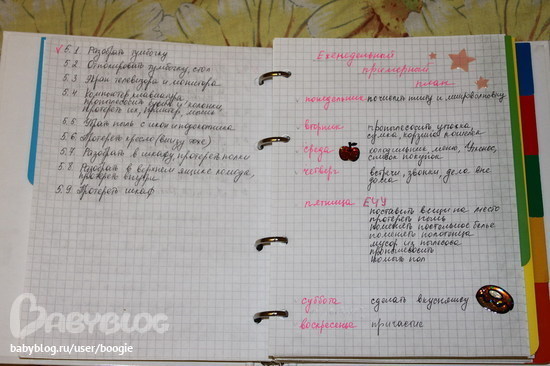 5.1 Разобрать тумбочку
5.2. Отполировать тумбочку, стол
5.3 Экран телевизора и монитора
5.4 Компьютер, клавиатура
пропылесосить, и колонки,
протереть их, принтер, мышь
5.5
5.6 Протереть кресло (внизу тоже)
5.7 Разобрать в шкафу, протереть полки
5.8 Разобрать в верхнем ящике комода,
протереть внутри
5.9 Протереть шкаф
Еженедельный
примерный
план
понедельник почистить плиту и микроволновку
вторник пропылесосить
сумка, корзина, кошелек
среда холодильник, меню,
список покупок
четверг встречи, звонки, дела вне
дома
пятница ЕЧУ
поставить вещи на место
протереть пыль
поменять постельное белье
поменять полотенца
мусор из
пропылесосить
помыть пол
суббота сделать вкусняшку
воскресенье причастие
BABYBLOG
babyblog.ru/user/boogie